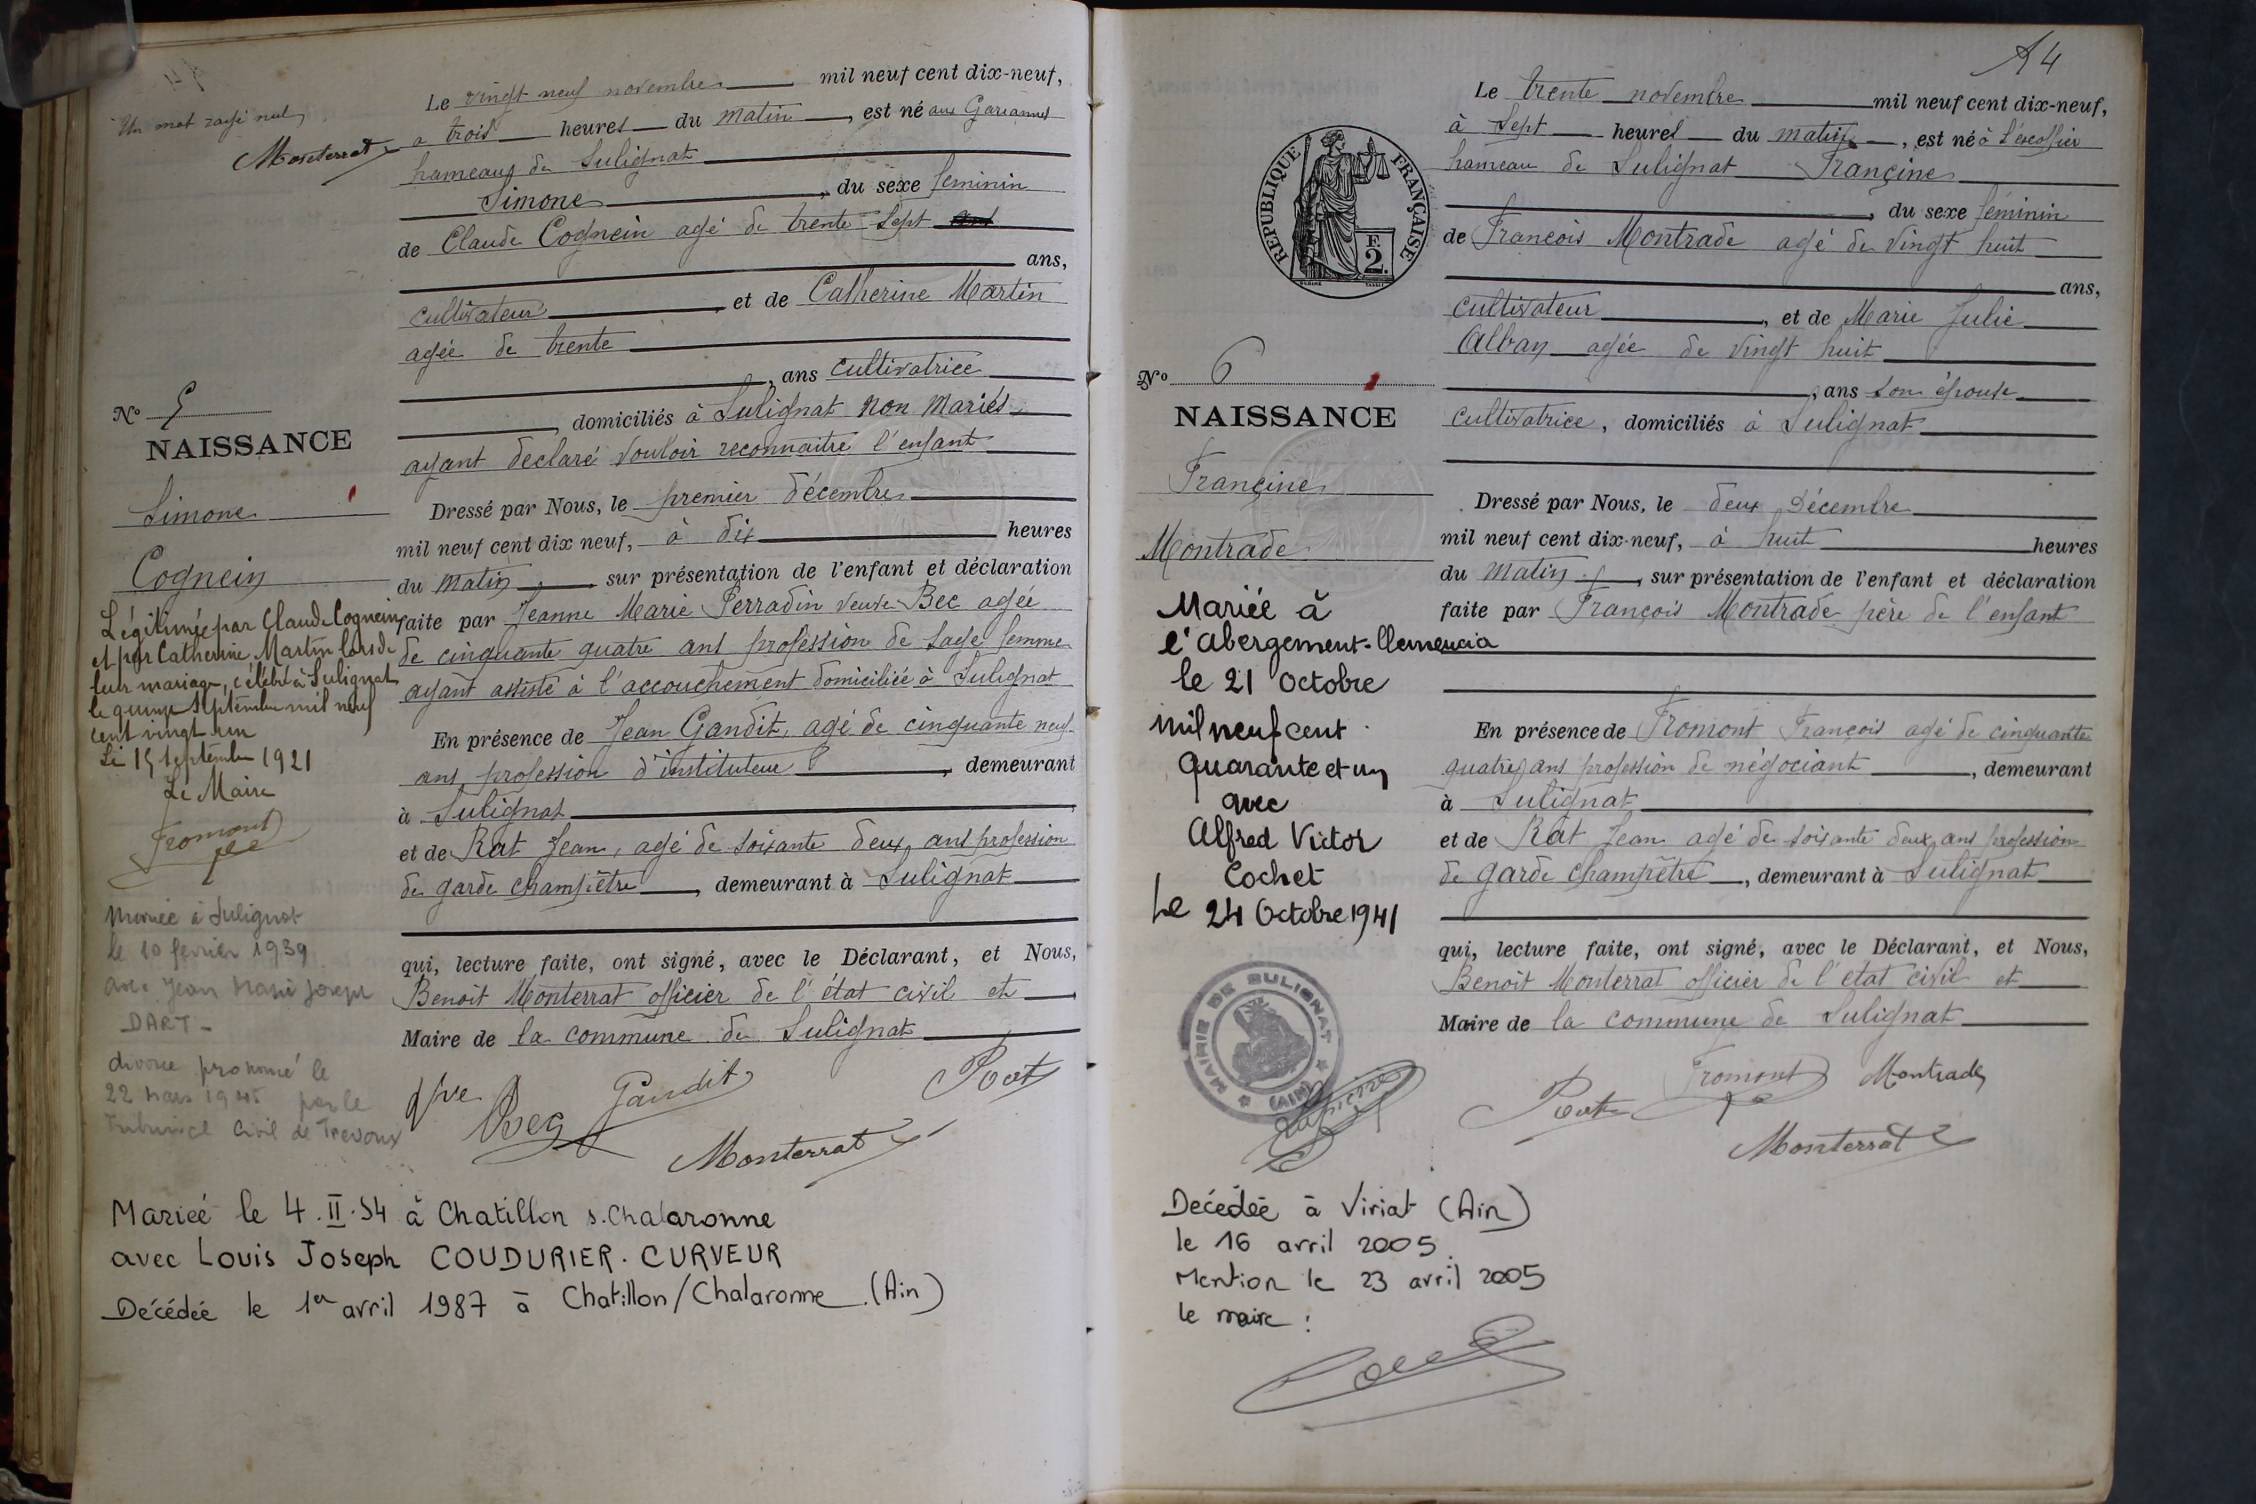 Un mot rayé nul
Monterrat
Le vingt neuf novembre mil neuf cent dix-neuf,
a trois heures du matin, est né aux Gariannes
hameau de Sulignat
Simone, du sexe feminin
de Claude Cognein agé de trente-sept
ans,
cultivateur, et de Catherine Martin
agée de trente
, ans cultivatrice
, domiciliés à Sulignat non mariés
ayant declaré vouloir reconnaitre l'enfant
Dressé par Nous, le premier décembre
mil neuf cent dix neuf, à dix heures
du matin, sur présentation de l'enfant et déclaration
faite par Jeanne Marie Perradin veuve Bec agée
de cinquante quatre ans profession de sage femme
ayant assisté à l'accouchement domiciliée à Sulignat
En présence de Jean Gandit, agé de cinquante neuf
ans profession d'instituteur, demeurant
à Sulignat
et de Rat Jean, agé de soixante deux, ans profession
de garde champêtre, demeurant à Sulignat
qui, lecture faite, ont signé, avec le Déclarant, et Nous,
Benoit Monterrat officier de l'état civil et
Maire de la commune de Sulignat
Vve Bec Gandit Rat
Monterrat
No 5
NAISSANCE
Simone
Cognein
Légitimée par Claude Cognein
et par Catherine Martin lors de
leur mariage, célébré à Sulignat
le quinze septembre mil neuf
cent vingt un
Le 15 septembre 1921
Le Maire
Fromont
Mariée à Sulignat
le 10 février 1939
avec Jean Marie Joseph
DART -
divorce prononcé le
22 mars 1945 par le
Tribunal Civil de Trevoux
Mariée le 4.II.54 à Chatillon s.Chalaronne
avec Louis Joseph COUDURIER-CURVEUR
Décédée le 1er avril 1987 à Chatillon/Chalaronne (Ain)
A4
REPUBLIQUE FRANÇAISE
F.
2.
Le trente novembre mil neuf cent dix-neuf,
à sept heures du matin, est né à l'escoffier
hameau de Sulignat Françine
, du sexe féminin
de François Montrade agé de vingt huit
ans,
cultivateur, et de Marie Julie
Alban agée de vingt huit
, ans son épouse
cultivatrice, domiciliés à Sulignat
Dressé par Nous, le deux Décembre
mil neuf cent dix-neuf, à huit heures
du matin, sur présentation de l'enfant et déclaration
faite par François Montrade père de l'enfant
En présence de Fromont François agé de cinquante
quatre ans profession de négociant, demeurant
à Sulignat
et de Rat Jean agé de soixante deux ans profession
de garde champêtre, demeurant à Sulignat
qui, lecture faite, ont signé, avec le Déclarant, et Nous,
Benoit Monterrat officier de l'état civil et
Maire de la commune de Sulignat
Rat Fromont Montrade
Monterrat
No 6
NAISSANCE
Françine
Montrade
Mariée à
l'Abergement-Clemencia
le 21 Octobre
mil neuf cent
quarante et un
avec
Alfred Victor
Cochet
Le 24 Octobre 1941
MAIRIE DE SULIGNAT
(AIN)
Décédée à Viriat (Ain)
le 16 avril 2005.
Mention le 23 avril 2005
le maire :